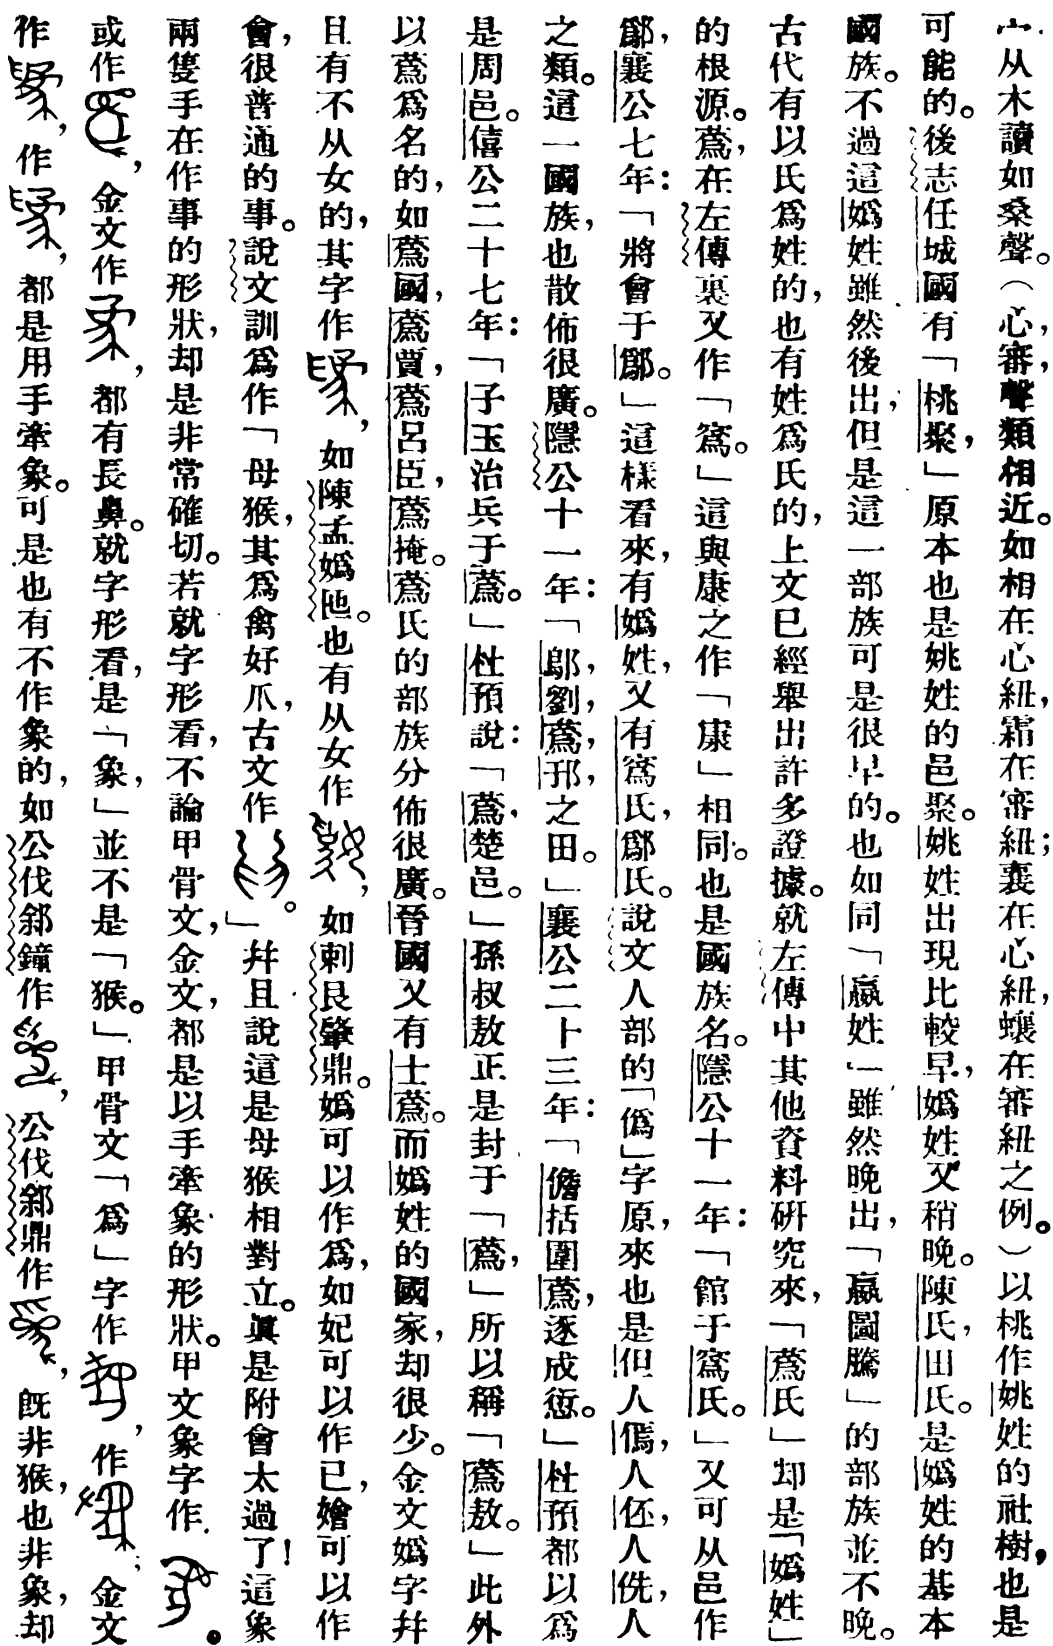 宀从木讀如桑聲。（心，審，聲類相近。如相在心紐，霜在審紐；襄在心紐，蠰在審紐之例。）以桃作姚姓的社樹，也是
可能的。後志任城國有「桃聚，」原本也是姚姓的邑聚。姚姓出現比較早，嬀姓又稍晚。陳氏，田氏。是嬀姓的基本
國族。不過這嬀姓雖然後出，但是這一部族可是很早的。也如同「嬴姓」雖然晚出，「嬴圖騰」的部族並不晚。
古代有以氏爲姓的，也有姓爲氏的，上文已經舉出許多證據。就左傳中其他資料研究來，「蔿氏」却是「嬀姓」
的根源。蔿，在左傳裏又作「寪。」這與康之作「㝩」相同。也是國族名。隱公十一年：「館于寪氏。」又可从邑作
鄬，襄公七年：「將會于鄬。」這樣看來，有嬀姓，又有寪氏，鄬氏。說文人部的「僞」字原來也是但人僞，人伾，人侁，人
之類。這一國族，也散佈很廣。隱公十一年：「鄔，劉，蔿，邘，之田。」襄公二十三年：「儋括圍蔿，逐成愆。」杜預都以爲
是周邑。僖公二十七年：「子玉治兵于蔿。」杜預說：「蔿，楚邑。」孫叔敖正是封于「蔿，」所以稱「蔿敖。」此外
以蔿爲名的，如蔿國，蔿賈，蔿呂臣，蔿掩。蔿氏的部族分佈很廣。晉國又有士蔿。而嬀姓的國家，却很少。金文嬀字幷
且有不从女的，其字作，如陳孟嬀匜。也有从女作，如剌㠱肇鼎。嬀可以作爲，如妃可以作已，嬒可以作
會，很普通的事。說文訓爲作「母猴，其爲禽好爪，古文作。」幷且說這是母猴相對立。眞是附會太過了！這象
兩隻手在作事的形狀，却是非常確切。若就字形看，不論甲骨文，金文，都是以手牽象的形狀。甲文象字作。
或作，金文作，都有長鼻。就字形看，是「象，」並不是「猴。」甲骨文「爲」字作，作，金文
作，作，都是用手牽象。可是也有不作象的，如公伐郐鐘作，公伐郐鼎作，既非猴，也非象，却